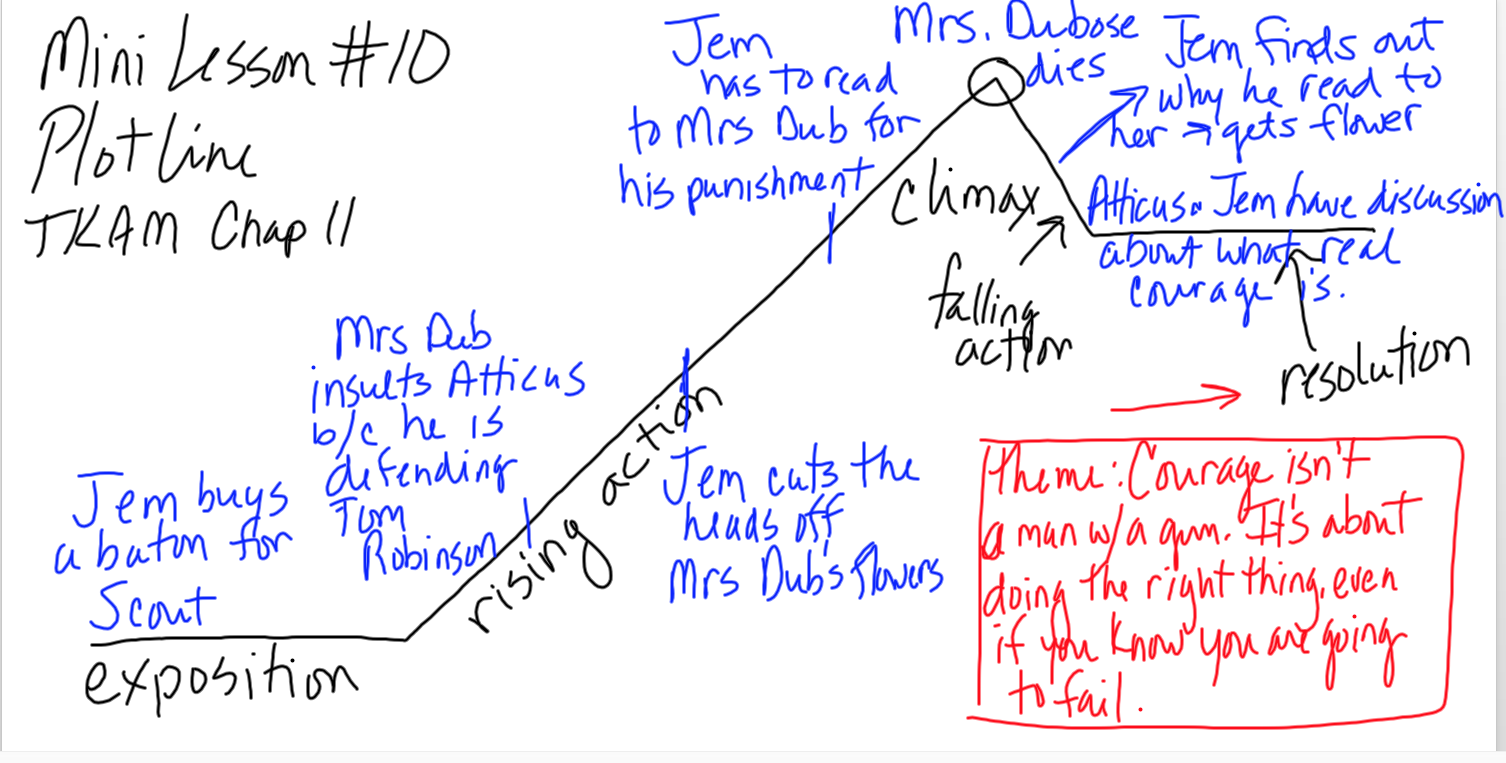 Mini Lesson #10
Plotline
TKAM Chap 11
Jem buys
a baton for
Scout
exposition
Mrs Dub
insults Atticus
b/c he is
defending
Tom
Robinson
rising action
Jem cuts the
heads off
Mrs Dub's flowers
Jem
has to read
to Mrs Dub for
his punishment
Mrs. Dubose
dies
climax
Jem finds out
why he read to
her → gets flower
falling
action
Atticus & Jem have discussion
about what real
courage is.
resolution
Theme: Courage isn't
a man w/a gun. It's about
doing the right thing, even
if you know you are going
to fail.